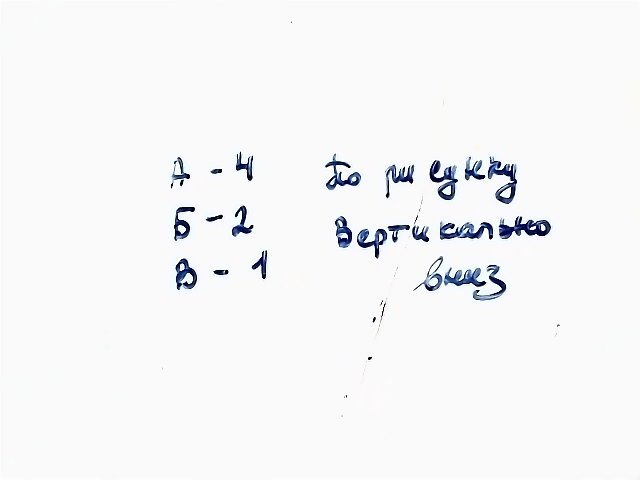 А - 4 По рисунку
Б - 2 Вертикально
В - 1 вниз